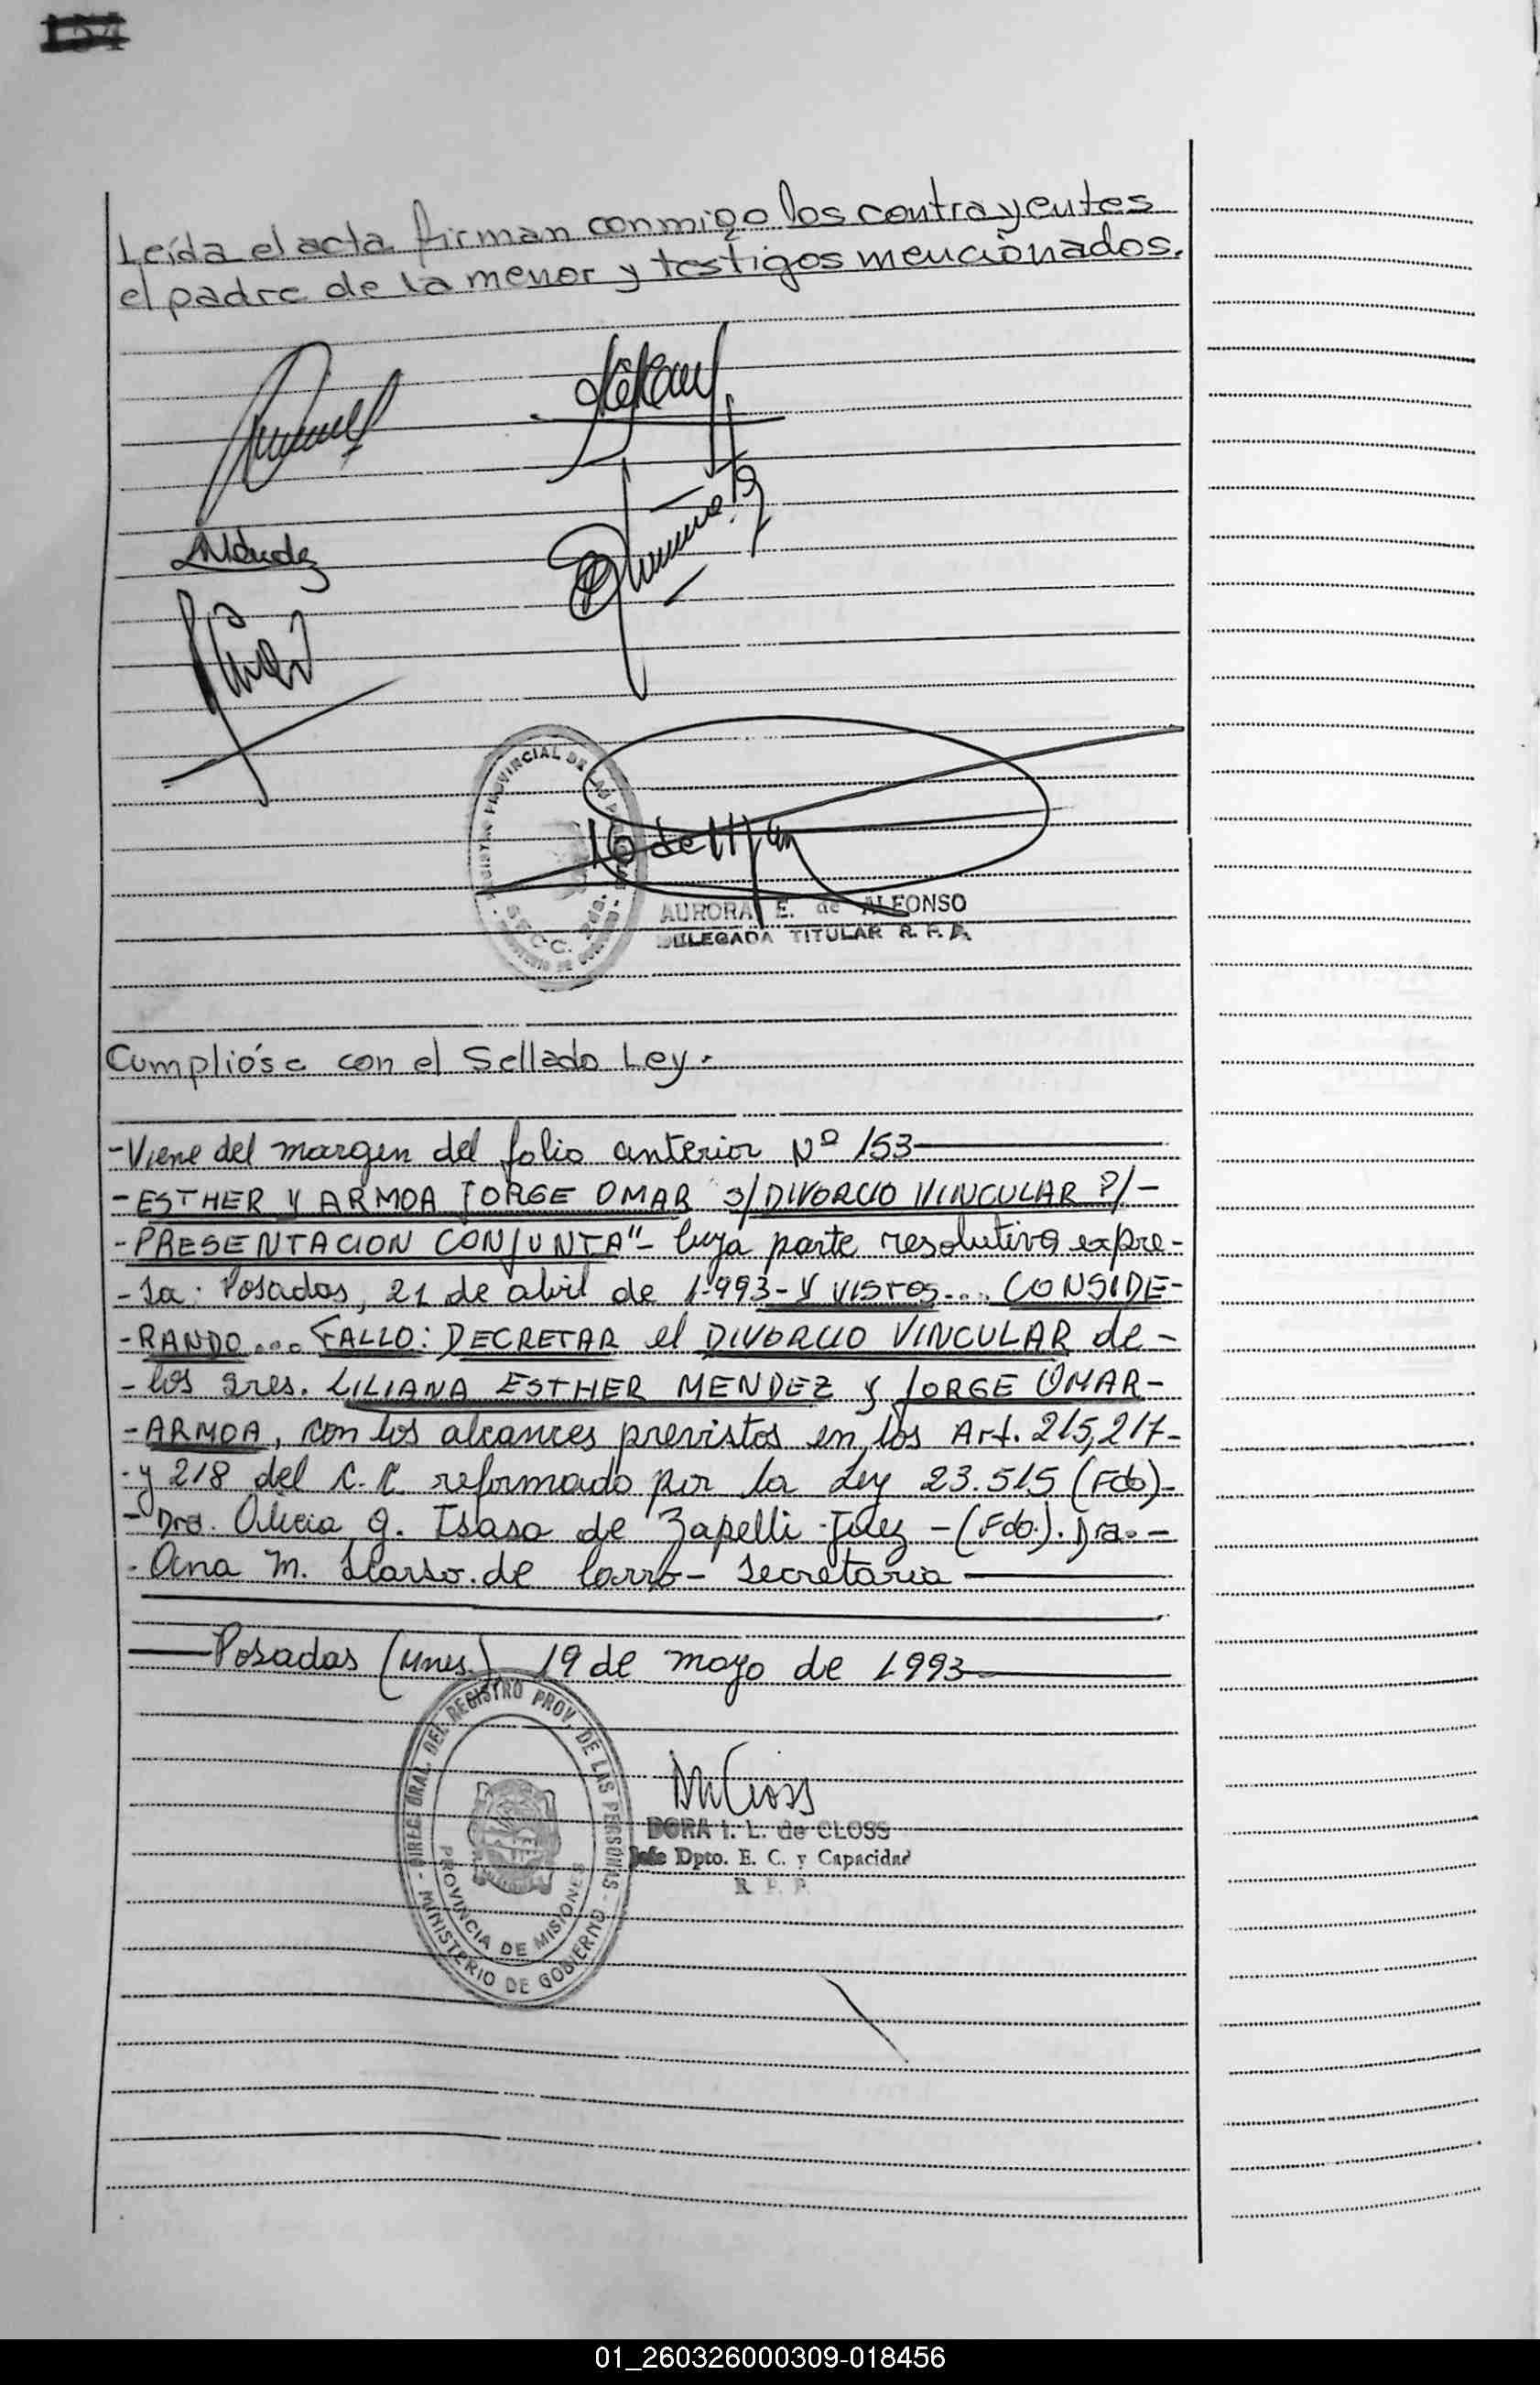 154
Leída el acta firman conmigo los contrayentes
el padre de la menor y testigos mencionados.
LMéndez
REGISTRO PROVINCIAL DE LAS PERSONAS
SECC. 2da.
MINISTERIO DE GOBIERNO
AURORA E. de ALFONSO
DELEGADA TITULAR R. P. P.
Cumplióse con el Sellado Ley.
-Viene del margen del folio anterior Nº 153
-ESTHER Y ARMOA JORGE OMAR S/DIVORCIO VINCULAR P/-
-PRESENTACION CONJUNTA"- Cuya parte resolutiva expre-
-sa: Posadas, 21 de abril de 1.993-Y VISTOS... CONSIDE-
-RANDO... FALLO: DECRETAR el DIVORCIO VINCULAR de-
-los sres. LILIANA ESTHER MENDEZ y JORGE OMAR-
-ARMOA, con los alcances previstos en los Art. 215,217-
-y 218 del C.C. reformado por la Ley 23.515 (Fdo)-
-Dra. Alicia G. Isasa de Zapelli-Juez-(Fdo.). Dra.-
-Ana M. de - Secretaria
Posadas (Mnes.) 19 de mayo de 1993
DIREC. GRAL. DEL REGISTRO PROV. DE LAS PERSONAS
PROVINCIA DE MISIONES
MINISTERIO DE GOBIERNO
DORA I. L. de CLOSS
Jefe Dpto. E. C. y Capacidad
R. P. P.
01_260326000309-018456